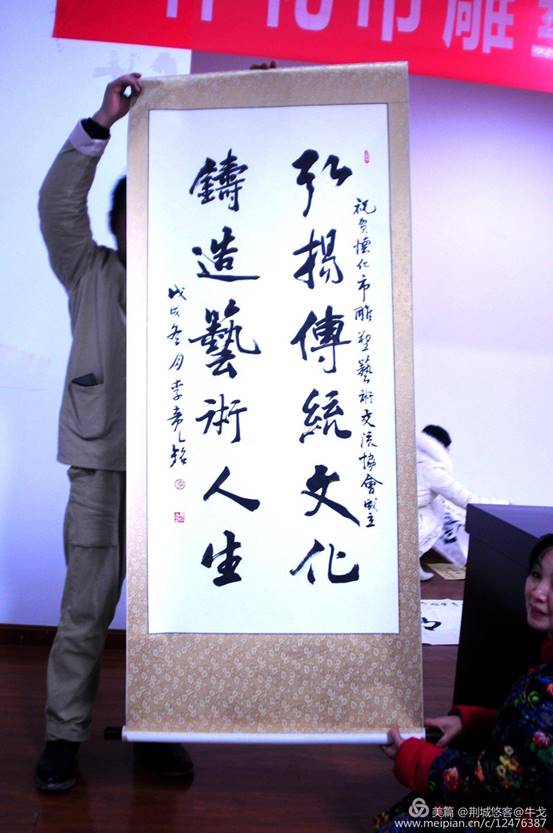 怀化市雕
祝贺懷化市雕塑藝術交流協會成立
弘揚傳統文化
鑄造藝術人生
戊戌冬月李章銘
美篇 @荆城悠客@牛戈
www.meipian.cn/c/12476387